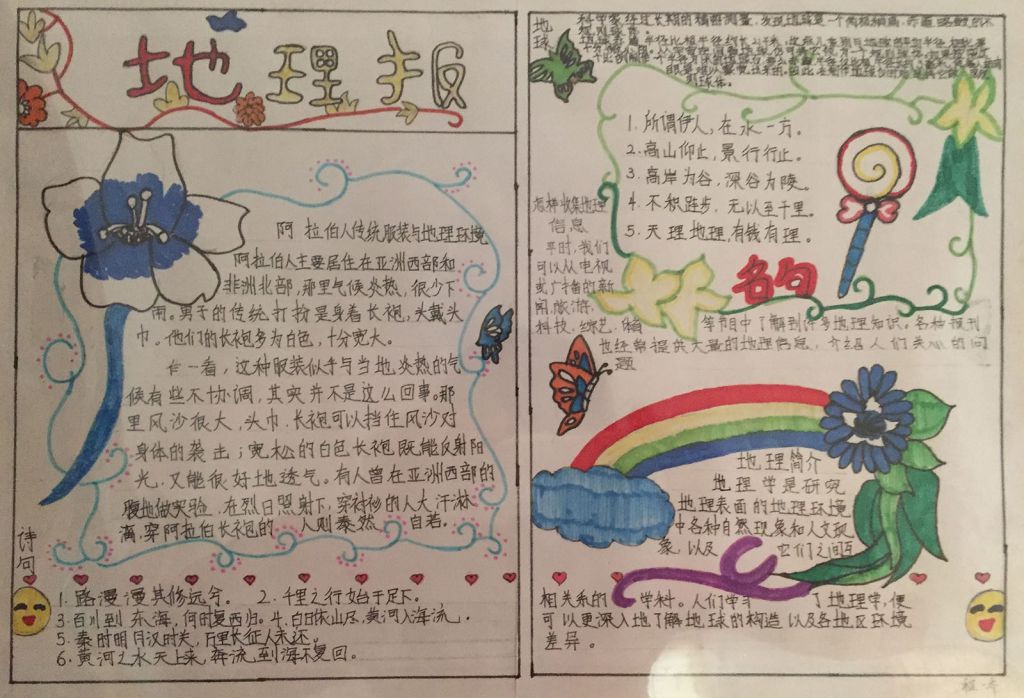 地理报
阿拉伯人传统服装与地理环境
阿拉伯人主要居住在亚洲西部和
非洲北部,那里气候炎热,很少下
雨。男子的传统打扮是身着长袍,头戴头
巾。他们的长袍多为白色,十分宽大。
乍一看,这种服装似乎与当地炎热的气
候有些不协调,其实并不是这么回事。那
里风沙很大,头巾、长袍可以挡住风沙对
身体的袭击;宽松的白色长袍既能反射阳
光,又能很好地透气。有人曾在亚洲西部的
腹地做实验,在烈日照射下,穿衬衫的人大汗淋
漓,穿阿拉伯长袍的人则泰然自若。
诗句
1. 路漫漫其修远兮。 2. 千里之行始于足下。
3. 百川到东海,何时复西归。4. 白日依山尽,黄河入海流.
5. 秦时明月汉时关,万里长征人未还。
6. 黄河之水天上来,奔流到海不复回。
地球
科学家经过长期的精密测量,发现地球是一个两极稍扁,赤道略鼓的不
规则球体。
1. 所谓伊人,在水一方。
2. 高山仰止,景行行止。
3. 高岸为谷,深谷为陵。
4. 不积跬步,无以至千里。
5. 天理地理,有钱有理。
名句
怎样收集地理
信息
平时,我们
可以从电视
或广播的新
闻,旅游,
科技、综艺、体育等节目中了解到许多地理知识。各种报刊
也经常提供大量的地理信息,介绍人们关心的问
题
地理简介
地理学是研究
地理表面的地理环境
中各种自然现象和人文现
象,以及它们之间互
相关系的学科。人们学习了地理学,便
可以更深入地了解地球的构造以及各地区环境
差异。